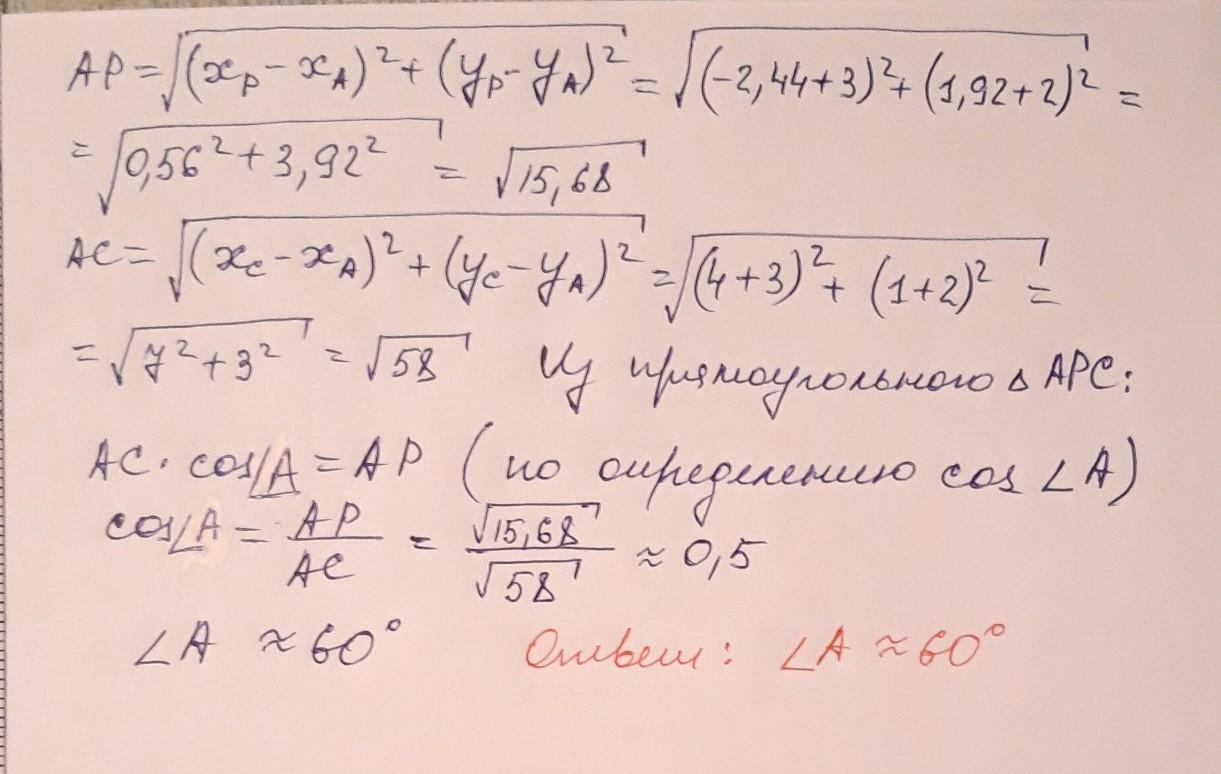 AP = √(x_P - x_A)² + (y_P - y_A)² = √(-2,44+3)² + (1,92+2)² =
= √0,56² + 3,92² = √15,68
AC = √(x_C - x_A)² + (y_C - y_A)² = √(4+3)² + (1+2)² =
= √7² + 3² = √58 Из прямоугольного Δ APC:
AC · cos∠A = AP (по определению cos ∠A)
cos∠A = AP/AC = √15,68/√58 ≈ 0,5
∠A ≈ 60° Ответ: ∠A ≈ 60°